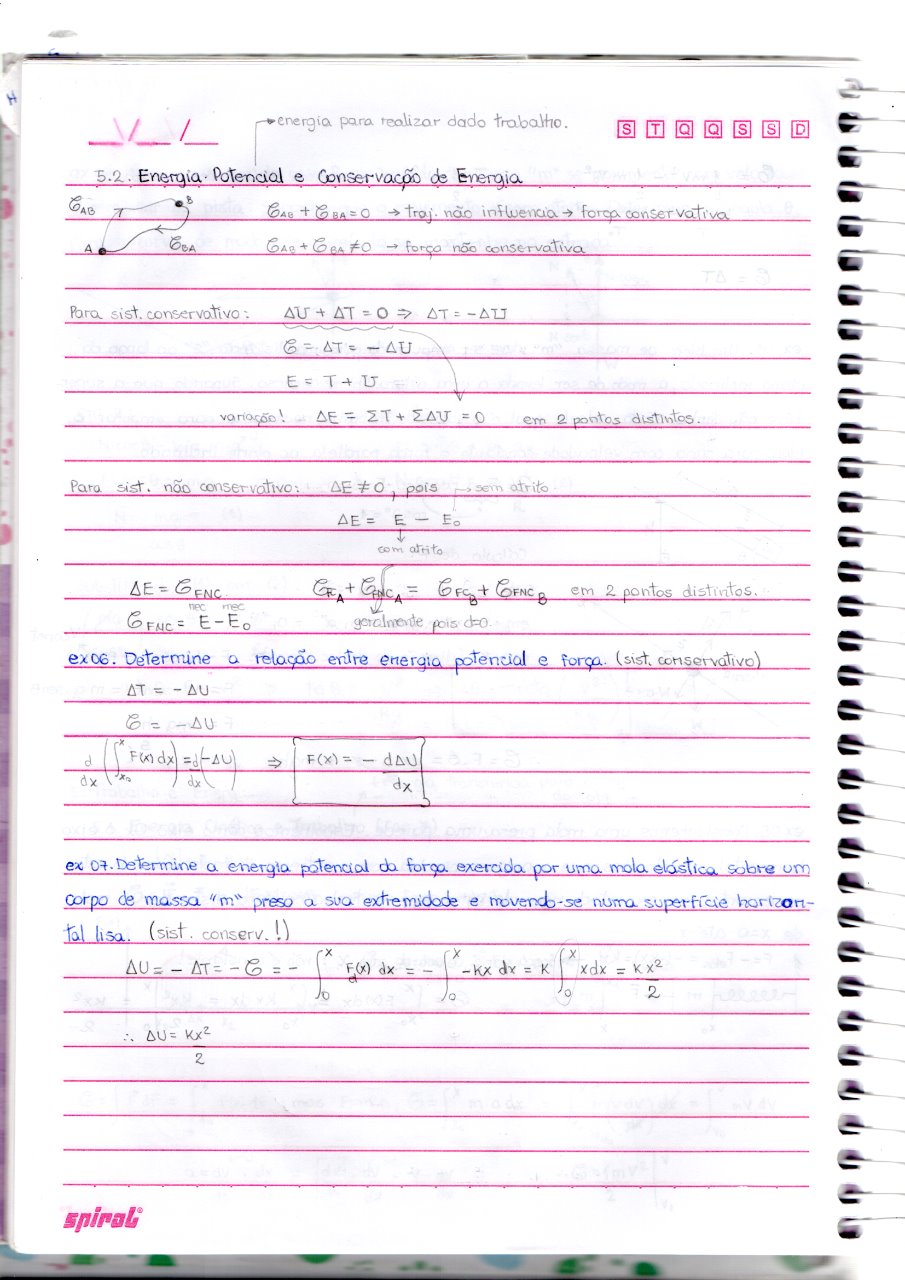 energia para realizar dado trabalho.
S T Q Q S S D
5.2. Energia Potencial e Conservação de Energia
𝒞AB B 𝒞AB + 𝒞BA = 0 → traj. não influencia → força conservativa
A 𝒞BA 𝒞AB + 𝒞BA ≠ 0 → força não conservativa
Para sist. conservativo: ΔU + ΔT = 0 ⇒ ΔT = -ΔU
𝒞 = ΔT = -ΔU
E = T + U
variação! ΔE = ΣT + ΣΔU = 0 em 2 pontos distintos.
Para sist. não conservativo: ΔE ≠ 0, pois → sem atrito
ΔE = E - E₀
com atrito
ΔE = 𝒞FNC. 𝒞FC A + 𝒞FNC A = 𝒞FC B + 𝒞FNC B em 2 pontos distintos.
𝒞FNC = Emec - E₀mec geralmente pois d=0.
ex06. Determine a relação entre energia potencial e força. (sist. conservativo)
ΔT = -ΔU
𝒞 = -ΔU
d/dx (∫x₀^x F(x) dx) = d/dx (-ΔU) ⇒ F(x) = - dΔU/dx
ex 07. Determine a energia potencial da força exercida por uma mola elástica sobre um
corpo de massa "m" preso a sua extremidade e movendo-se numa superfície horizon-
tal lisa. (sist. conserv.!)
ΔU = -ΔT = -𝒞 = - ∫0^x F(x) dx = - ∫0^x -Kx dx = K ∫0^x x dx = Kx²/2
∴ ΔU = Kx²/2
spiral®